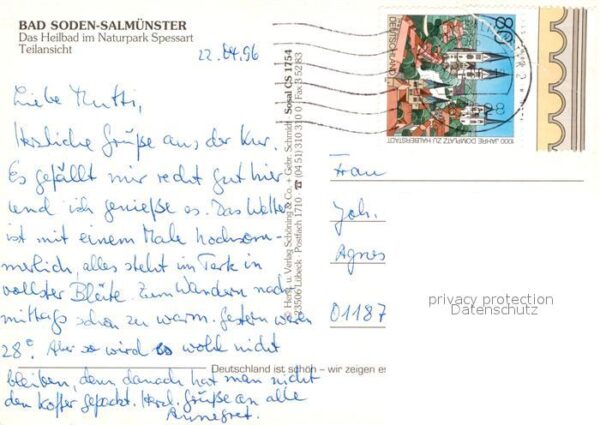 BAD SODEN-SALMÜNSTER
Das Heilbad im Naturpark Spessart
Teilansicht
22.04.96
Liebe Mutti,
Herzliche Grüße aus der Kur.
Es gefällt mir recht gut hier
und ich genieße es. Das Wetter
ist mit einem Male hochsom-
merlich, alles steht im Park in
vollster Blüte. Zum Wandern nach-
mittags schon zu warm. Gestern waren
28°. Aber so wird es wohl nicht
bleiben, denn danach hat man nicht
den Koffer gepackt. Herzl. Grüße an alle
Annegret.
© Herst. u. Verlag Schöning & Co. + Gebr. Schmidt
Sosal CS 1754
23506 Lübeck · Postfach 1710 · ☎ (04 51) 310 310 · Fax 3 52 83
Deutschland ist schön – wir zeigen es
80
DEUTSCHLAND
1000 JAHRE DOMPLATZ ZU HALBERSTADT
Frau
Joh.
Agnes
01187
privacy protection
Datenschutz